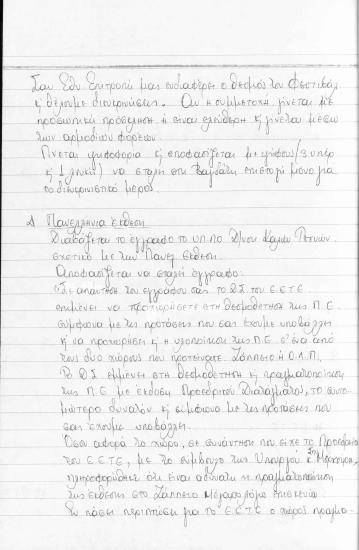 Σαν Εθν. Επιτροπή μας ενδιαφέρει ο θεσμός του Φεστιβάλ
ή θέλουμε διευκρινήσεις. Αν η συμμετοχή γίνεται με
προσωπική πρόσκληση ή είναι ελεύθερη ή γίνεται μέσω
των αρμοδίων φορέων.
Γίνεται ψηφοφορία κ αποφασίζεται με ψήφους (3 υπέρ
κ 1 λευκό) να σταλεί στη Βαγδάτη επιστολή μόνο για
το διευκρινιστικό μέρος.
Πανελλήνια έκθεση
Διαβάζεται το έγγραφο του ΥΠ.ΠΟ Δ/νση Καλών Τεχνών
σχετικό με την Πανελ. έκθεση.
Αποφασίζεται να σταλεί έγγραφο:
"Σε απάντηση του εγγράφου σας το Δ.Σ. του Ε.Ε.Τ.Ε.
επιμένει να προχωρήσετε στη θεσμοθέτηση της Π.Ε.
σύμφωνα με τις προτάσεις που σας έχουμε υποβάλλει
κ να προχωρήσει κ η υλοποίηση της Π.Ε. σ' ένα από
τους δύο χώρους που προτείνατε. Ζάππειο ή Ο.Λ.Π.
Το Δ.Σ. εμμένει στη θεσμοθέτηση κ πραγματοποίηση
της Π.Ε με έκδοση Προεδρικού Διατάγματος, το συντο-
μώτερο δυνατόν κ σύμφωνα με τις προτάσεις που
σας έχουμε υποβάλλει.
Όσον αφορά το χώρο, σε συνάντηση που είχε το Προεδρείο
του Ε.Ε.Τ.Ε, με το σύμβουλο της Υπουργού κ
πληροφορήθηκε ότι είναι αδύνατη η πραγματοποίηση
της έκθεσης στο Ζάππειο Μέγαρο λόγω επισκευών.
Εν πάσει περιπτώσει για το Ε.Ε.Τ.Ε ο χώρος πραγμα-